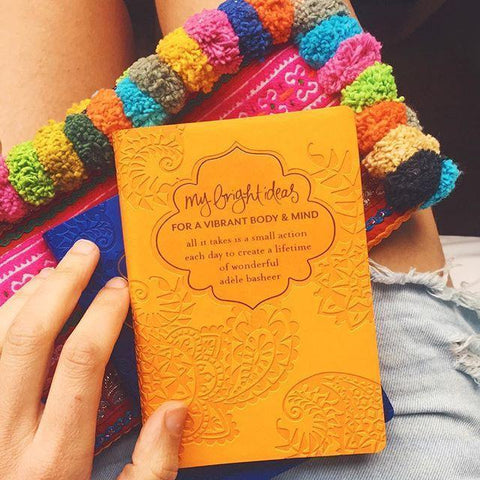 my bright ideas
FOR A VIBRANT BODY & MIND
all it takes is a small action
each day to create a lifetime
of wonderful
adele basheer